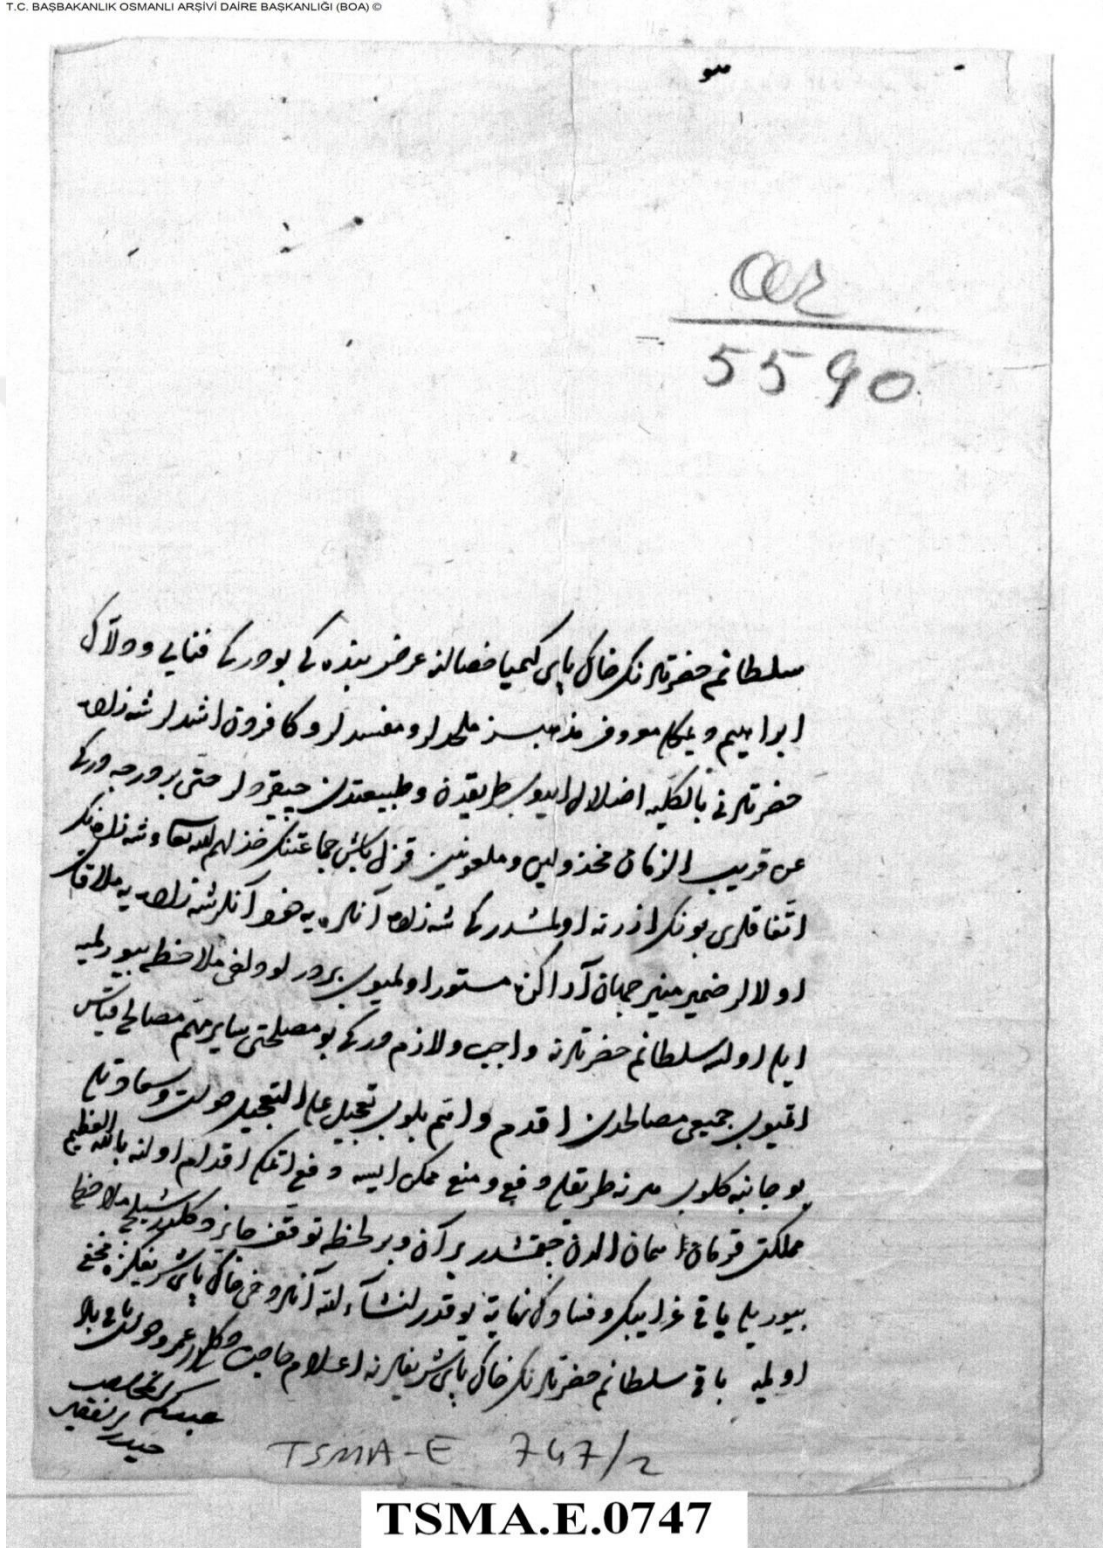 T.C. BAŞBAKANLIK OSMANLI ARŞİVİ DAİRE BAŞKANLIĞI (BOA) ©
هو
5590
سلطانم حضرتلرنك خاك پاى كيميا خصالنه عرض بنده كى بودر كه فنايى و ولاّك
ابراهيم و معروف مذهبسز ملحدلر و مفسدلر و كافردن اشدلر شهزاده
حضرتلرنى بالكليه اضلال ايدوب طريقدن و طبيعتدن چيقرديلر حتى بر درجه در كه
عن قريب الزمان مخذولين و ملعونين قزل باش جماعتنك خذلهم الله تعالى و شهزاده نك
اتفاقلرى بونك اوزرنه اولمشدر كه شهزاده آنلره يه خود آنلر شهزاده يه ملاقات
اولالر ضمير منير جهان آرا كزه مستور اولميوب بردرلو دخى ملاحظه بيورلميه
ايله اولسه سلطانم حضرتلرنه واجب و لازمدر كه بو مصلحتى ساير مهم مصالحه قياس
اتميوب جميع مصالحدن اقدم و اهم بلوب تعجيل على التعجيل دولت و سعادتله
بو جانبه كلوب هر نه طريقله دفع و منع ممكن ايسه دفع اتمكه اقدام اولنه بالله العظيم
مملكت قرمان الدن چقمشدر بر آن و بر لحظه توقف جايز دكلدر شيله ملاحظه
بيوريله باقى غرايبك و فسادك نهايتى يوقدر انشاء الله آنلر دخى خاك پاى شريفكزه مخفى
اولميه باقى سلطانم حضرتلرنك خاك پاى شريفلرنه اعلام حاجت دكلدر عمر و دولت باقى باد
عبدكم المخلص
حيدر الفقير
TSMA-E 747/2
TSMA.E.0747